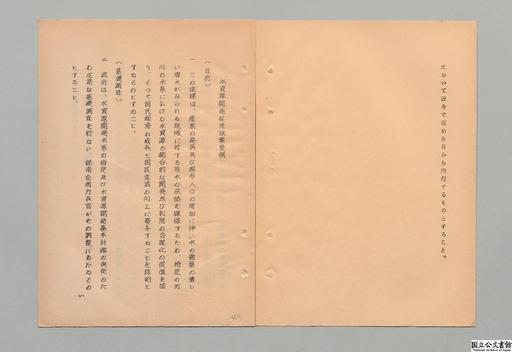 において政令で定める日から施行するものとすること。
水資源開発促進法案要綱
(目的)
一 この法律は、産業の発展及び都市人口の増加に伴い水の需要の著し
い増大がみられる地域に対する用水の供給を確保するため、特定の河
川の水系における水資源の総合的な開発及び利用の合理化の促進を図
り、もつて国民経済の成長と国民生活の向上に寄与することを目的と
するものとすること。
(基礎調査)
二 政府は、水資源開発水系の指定及び水資源開発基本計画の決定のた
め必要な基礎調査を行ない、経済企画庁長官がその調整にあたるもの
とすること。
国立公文書館
National Archives of Japan